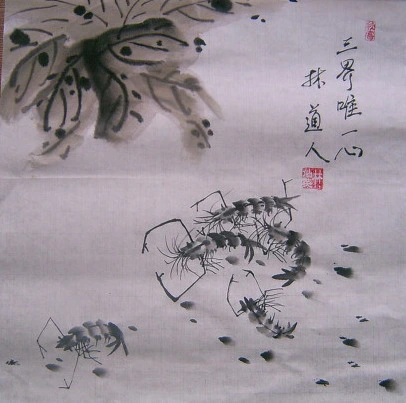 三界唯一心
林道人